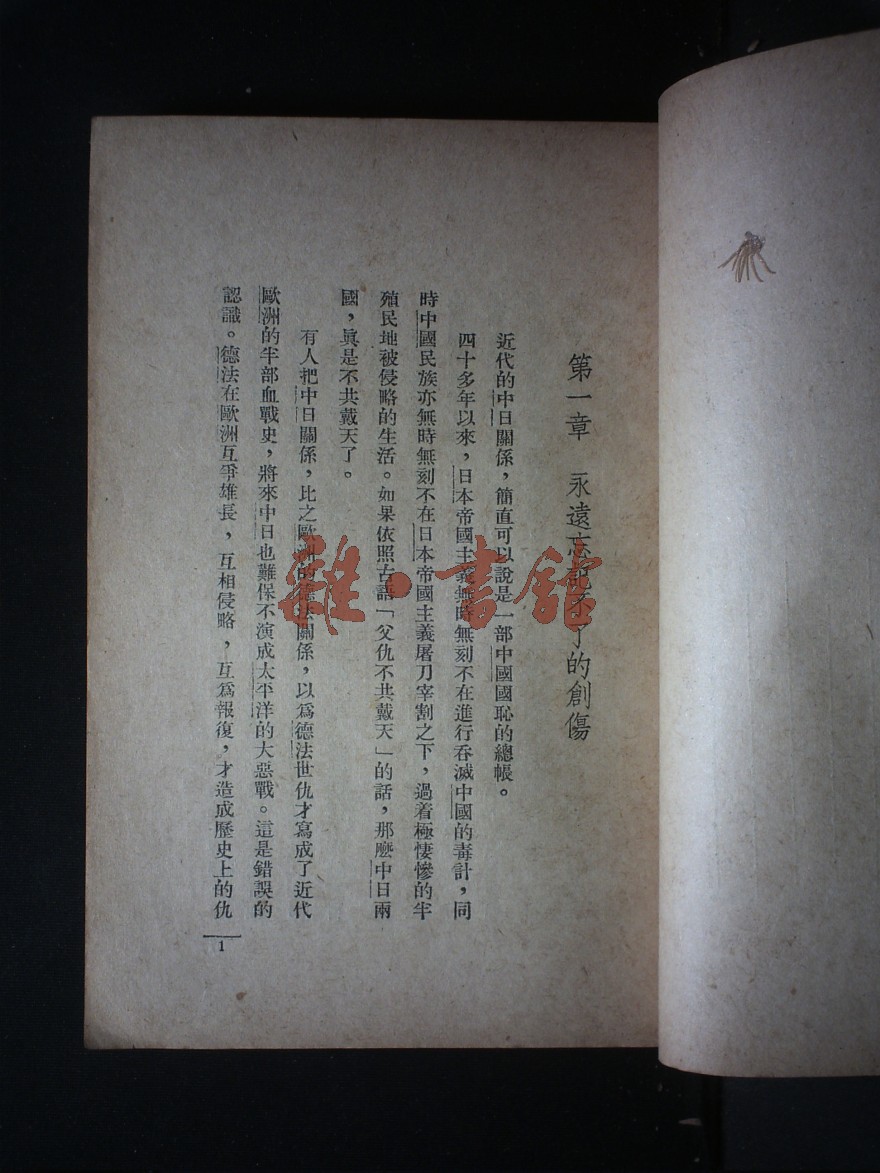 第一章 永遠忘記不了的創傷
近代的中日關係，簡直可以說是一部中國國恥的總帳。
四十多年以來，日本帝國主義無時無刻不在進行吞滅中國的毒計，同
時中國民族亦無時無刻不在日本帝國主義屠刀宰割之下，過着極悽慘的半
殖民地被侵略的生活。如果依照古語「父仇不共戴天」的話，那麼中日兩
國，眞是不共戴天了。
有人把中日關係，比之歐洲的德法關係，以爲德法世仇才寫成了近代
歐洲的半部血戰史，將來中日也難保不演成太平洋的大惡戰。這是錯誤的
認識。德法在歐洲互爭雄長，互相侵略，互爲報復，才造成歷史上的仇
1
雜·書館